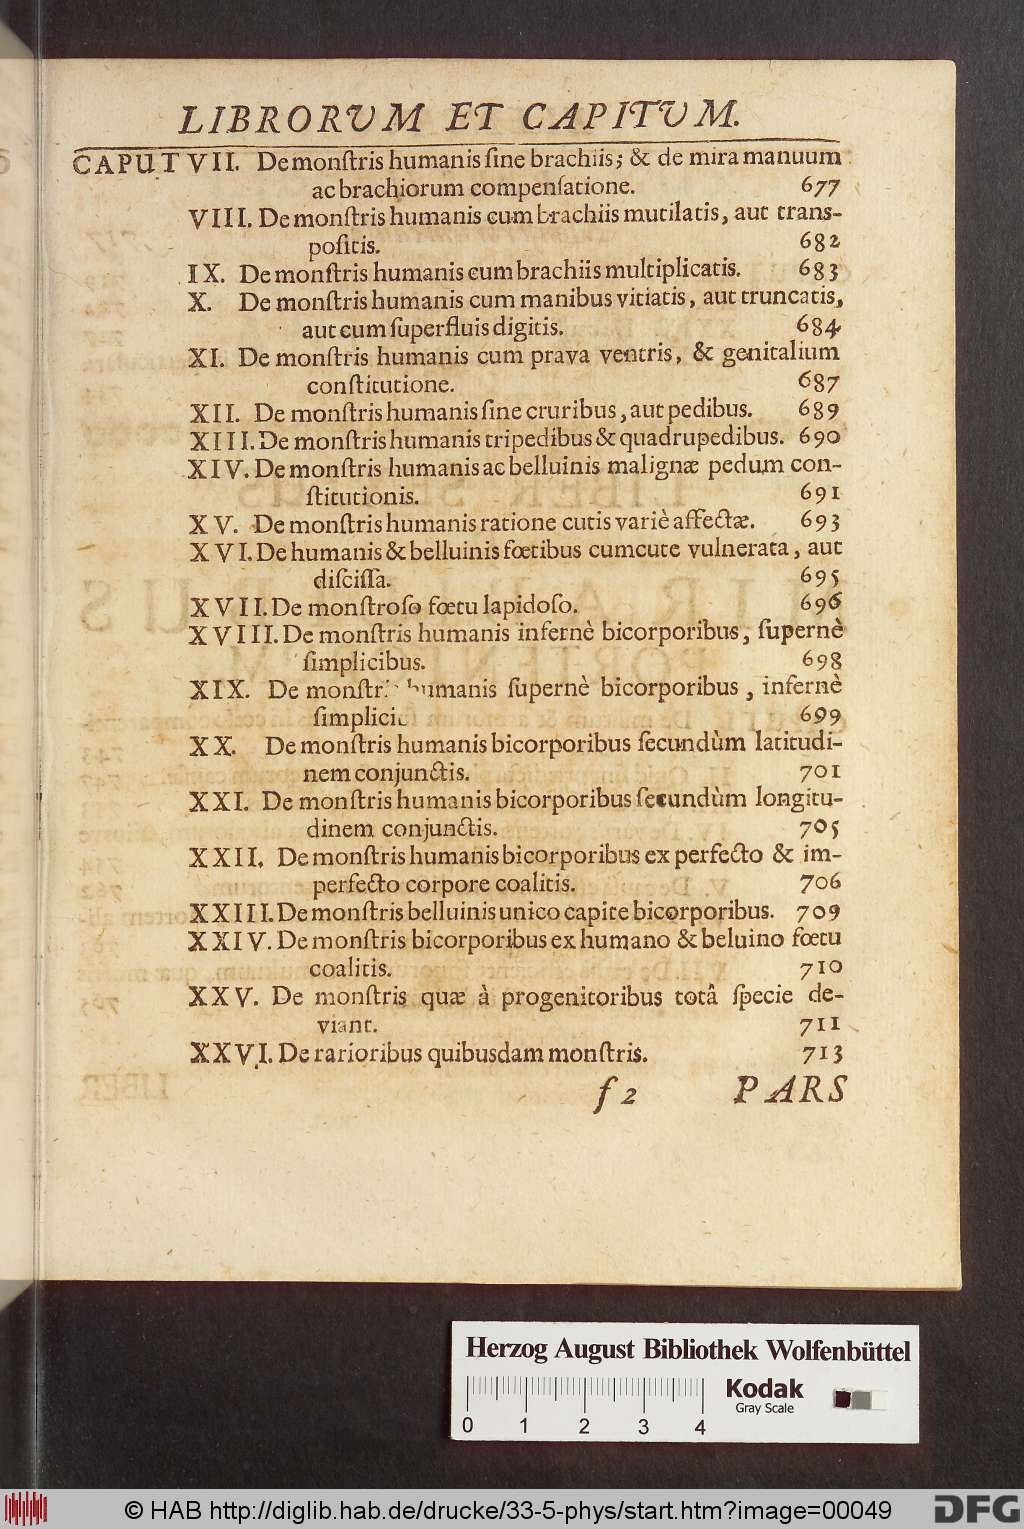 LIBRORUM ET CAPITUM.
CAPUT VII. De monſtris humanis ſine brachiis; & de mira manuum
ac brachiorum compenſatione. 677
VIII. De monſtris humanis cum brachiis mutilatis, aut trans-
poſitis. 682
IX. De monſtris humanis cum brachiis multiplicatis. 683
X. De monſtris humanis cum manibus vitiatis, aut truncatis,
aut cum ſuperfluis digitis. 684
XI. De monſtris humanis cum prava ventris, & genitalium
conſtitutione. 687
XII. De monſtris humanis ſine cruribus, aut pedibus. 689
XIII. De monſtris humanis tripedibus & quadrupedibus. 690
XIV. De monſtris humanis ac belluinis malignæ pedum con-
ſtitutionis. 691
XV. De monſtris humanis ratione cutis variè affectæ. 693
XVI. De humanis & belluinis fœtibus cum cute vulnerata, aut
diſciſſa. 695
XVII. De monſtroſo fœtu lapidoſo. 696
XVIII. De monſtris humanis infernè bicorporibus, ſupernè
ſimplicibus. 698
XIX. De monſtr humanis ſupernè bicorporibus, infernè
ſimplici 699
XX. De monſtris humanis bicorporibus ſecundùm latitudi-
nem conjunctis. 701
XXI. De monſtris humanis bicorporibus ſecundùm longitu-
dinem conjunctis. 705
XXII. De monſtris humanis bicorporibus ex perfecto & im-
perfecto corpore coalitis. 706
XXIII. De monſtris belluinis unico capite bicorporibus. 709
XXIV. De monſtris bicorporibus ex humano & beluino fœtu
coalitis. 710
XXV. De monſtris quæ à progenitoribus totâ ſpecie de-
viant. 711
XXVI. De rarioribus quibusdam monſtris. 713
f 2 PARS
Herzog August Bibliothek Wolfenbüttel
Kodak
Gray Scale
0 1 2 3 4
© HAB http://diglib.hab.de/drucke/33-5-phys/start.htm?image=00049
DFG